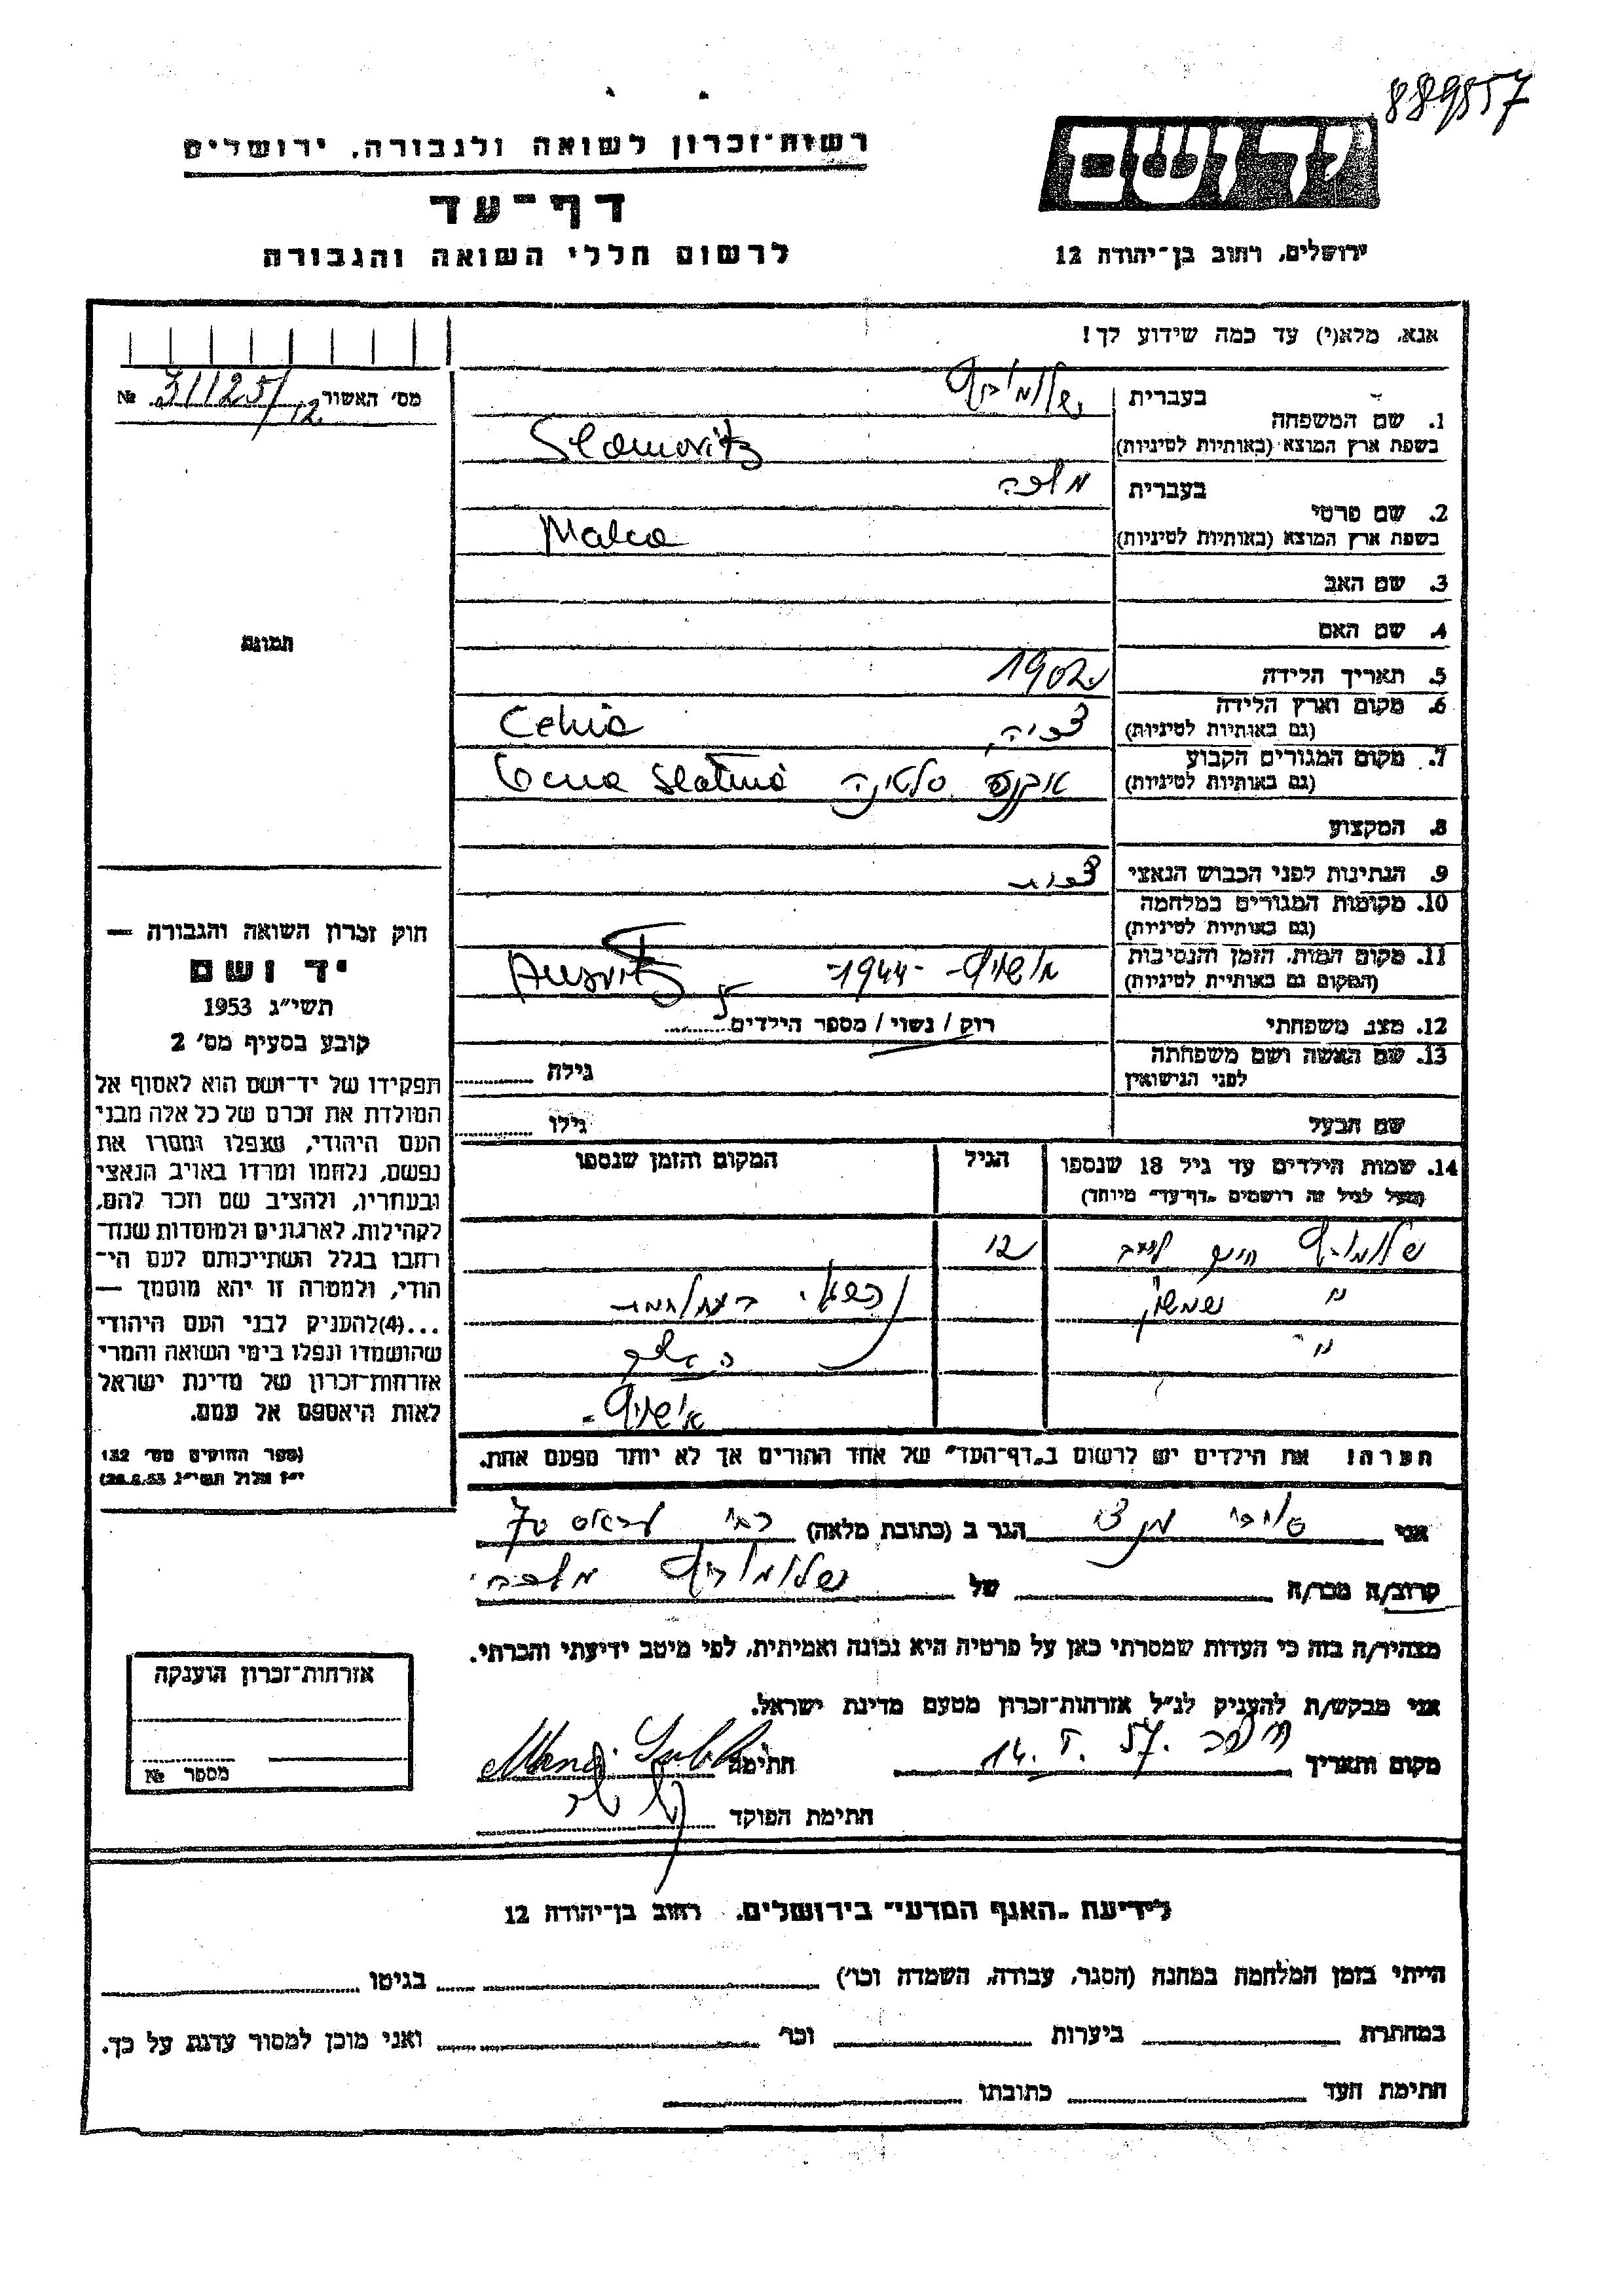 889857
רשות-זכרון לשואה ולגבורה, ירושלים
יד ושם
דף-עד
לרשום חללי השואה והגבורה
ירושלים, רחוב בן-יהודה 12
אנא, מלא(י) עד כמה שידוע לך!
מס' האשור 31125/12 №
1. שם המשפחה
בעברית
בשפת ארץ המוצא (באותיות לטיניות)
2. שם פרטי
בעברית מלכה
בשפת ארץ המוצא (באותיות לטיניות) Malca
3. שם האב
4. שם האם
תמונה
5. תאריך הלידה 1902
6. מקום וארץ הלידה
(גם באותיות לטיניות) Cehia
7. מקום המגורים הקבוע
(גם באותיות לטיניות) סלטינה Slatina
8. המקצוע
9. הנתינות לפני הכבוש הנאצי
10. מקומות המגורים במלחמה
(גם באותיות לטיניות)
11. מקום המות, הזמן והנסיבות
(המקום גם באותיות לטיניות) -1944- Ausvitz
12. מצב משפחתי רוק / נשוי / מספר הילדים 5
13. שם האשה ושם משפחתה
לפני הנישואין גילה
שם הבעל גילו
14. שמות הילדים עד גיל 18 שנספו הגיל המקום והזמן שנספו
(מעל לגיל זה רושמים "דף-עד" מיוחד)
12
" שמשון
"
הערה! את הילדים יש לרשום ב"דף-העד" של אחד ההורים אך לא יותר מפעם אחת.
חוק זכרון השואה והגבורה —
יד ושם
תשי"ג 1953
קובע בסעיף מס' 2
תפקידו של יד-ושם הוא לאסוף אל
המולדת את זכרם של כל אלה מבני
העם היהודי, שנפלו ומסרו את
נפשם, נלחמו ומרדו באויב הנאצי
ובעוזריו, ולהציב שם וזכר להם,
לקהילות, לארגונים ולמוסדות שנח-
רחבו בגלל השתייכותם לעם הי-
הודי, ולמטרה זו יהא מוסמך —
...(4)להעניק לבני העם היהודי
שהושמדו ונפלו בימי השואה והמרי
אזרחות-זכרון של מדינת ישראל
לאות היאספם אל עמם.
(ספר החוקים מס' 132
י"ז אלול תשי"ג 28.8.53)
אני הגר ב (כתובת מלאה)
קרוב/ה מכר/ה של מלכה
מצהיר/ה בזה כי העדות שמסרתי כאן על פרטיה היא נכונה ואמיתית, לפי מיטב ידיעתי והכרתי.
אני מבקש/ת להעניק לנ"ל אזרחות-זכרון מטעם מדינת ישראל.
מקום ותאריך 14. V. 57. חתימה
חתימת הפוקד
אזרחות-זכרון הוענקה
מספר №
לידיעת "האגף המדעי" בירושלים, רחוב בן-יהודה 12
הייתי בזמן המלחמה במחנה (הסגר, עבודה, השמדה וכו') בגיטו
במחתרת ביערות וכו' ואני מוכן למסור עדות על כך.
חתימת העד כתובתו